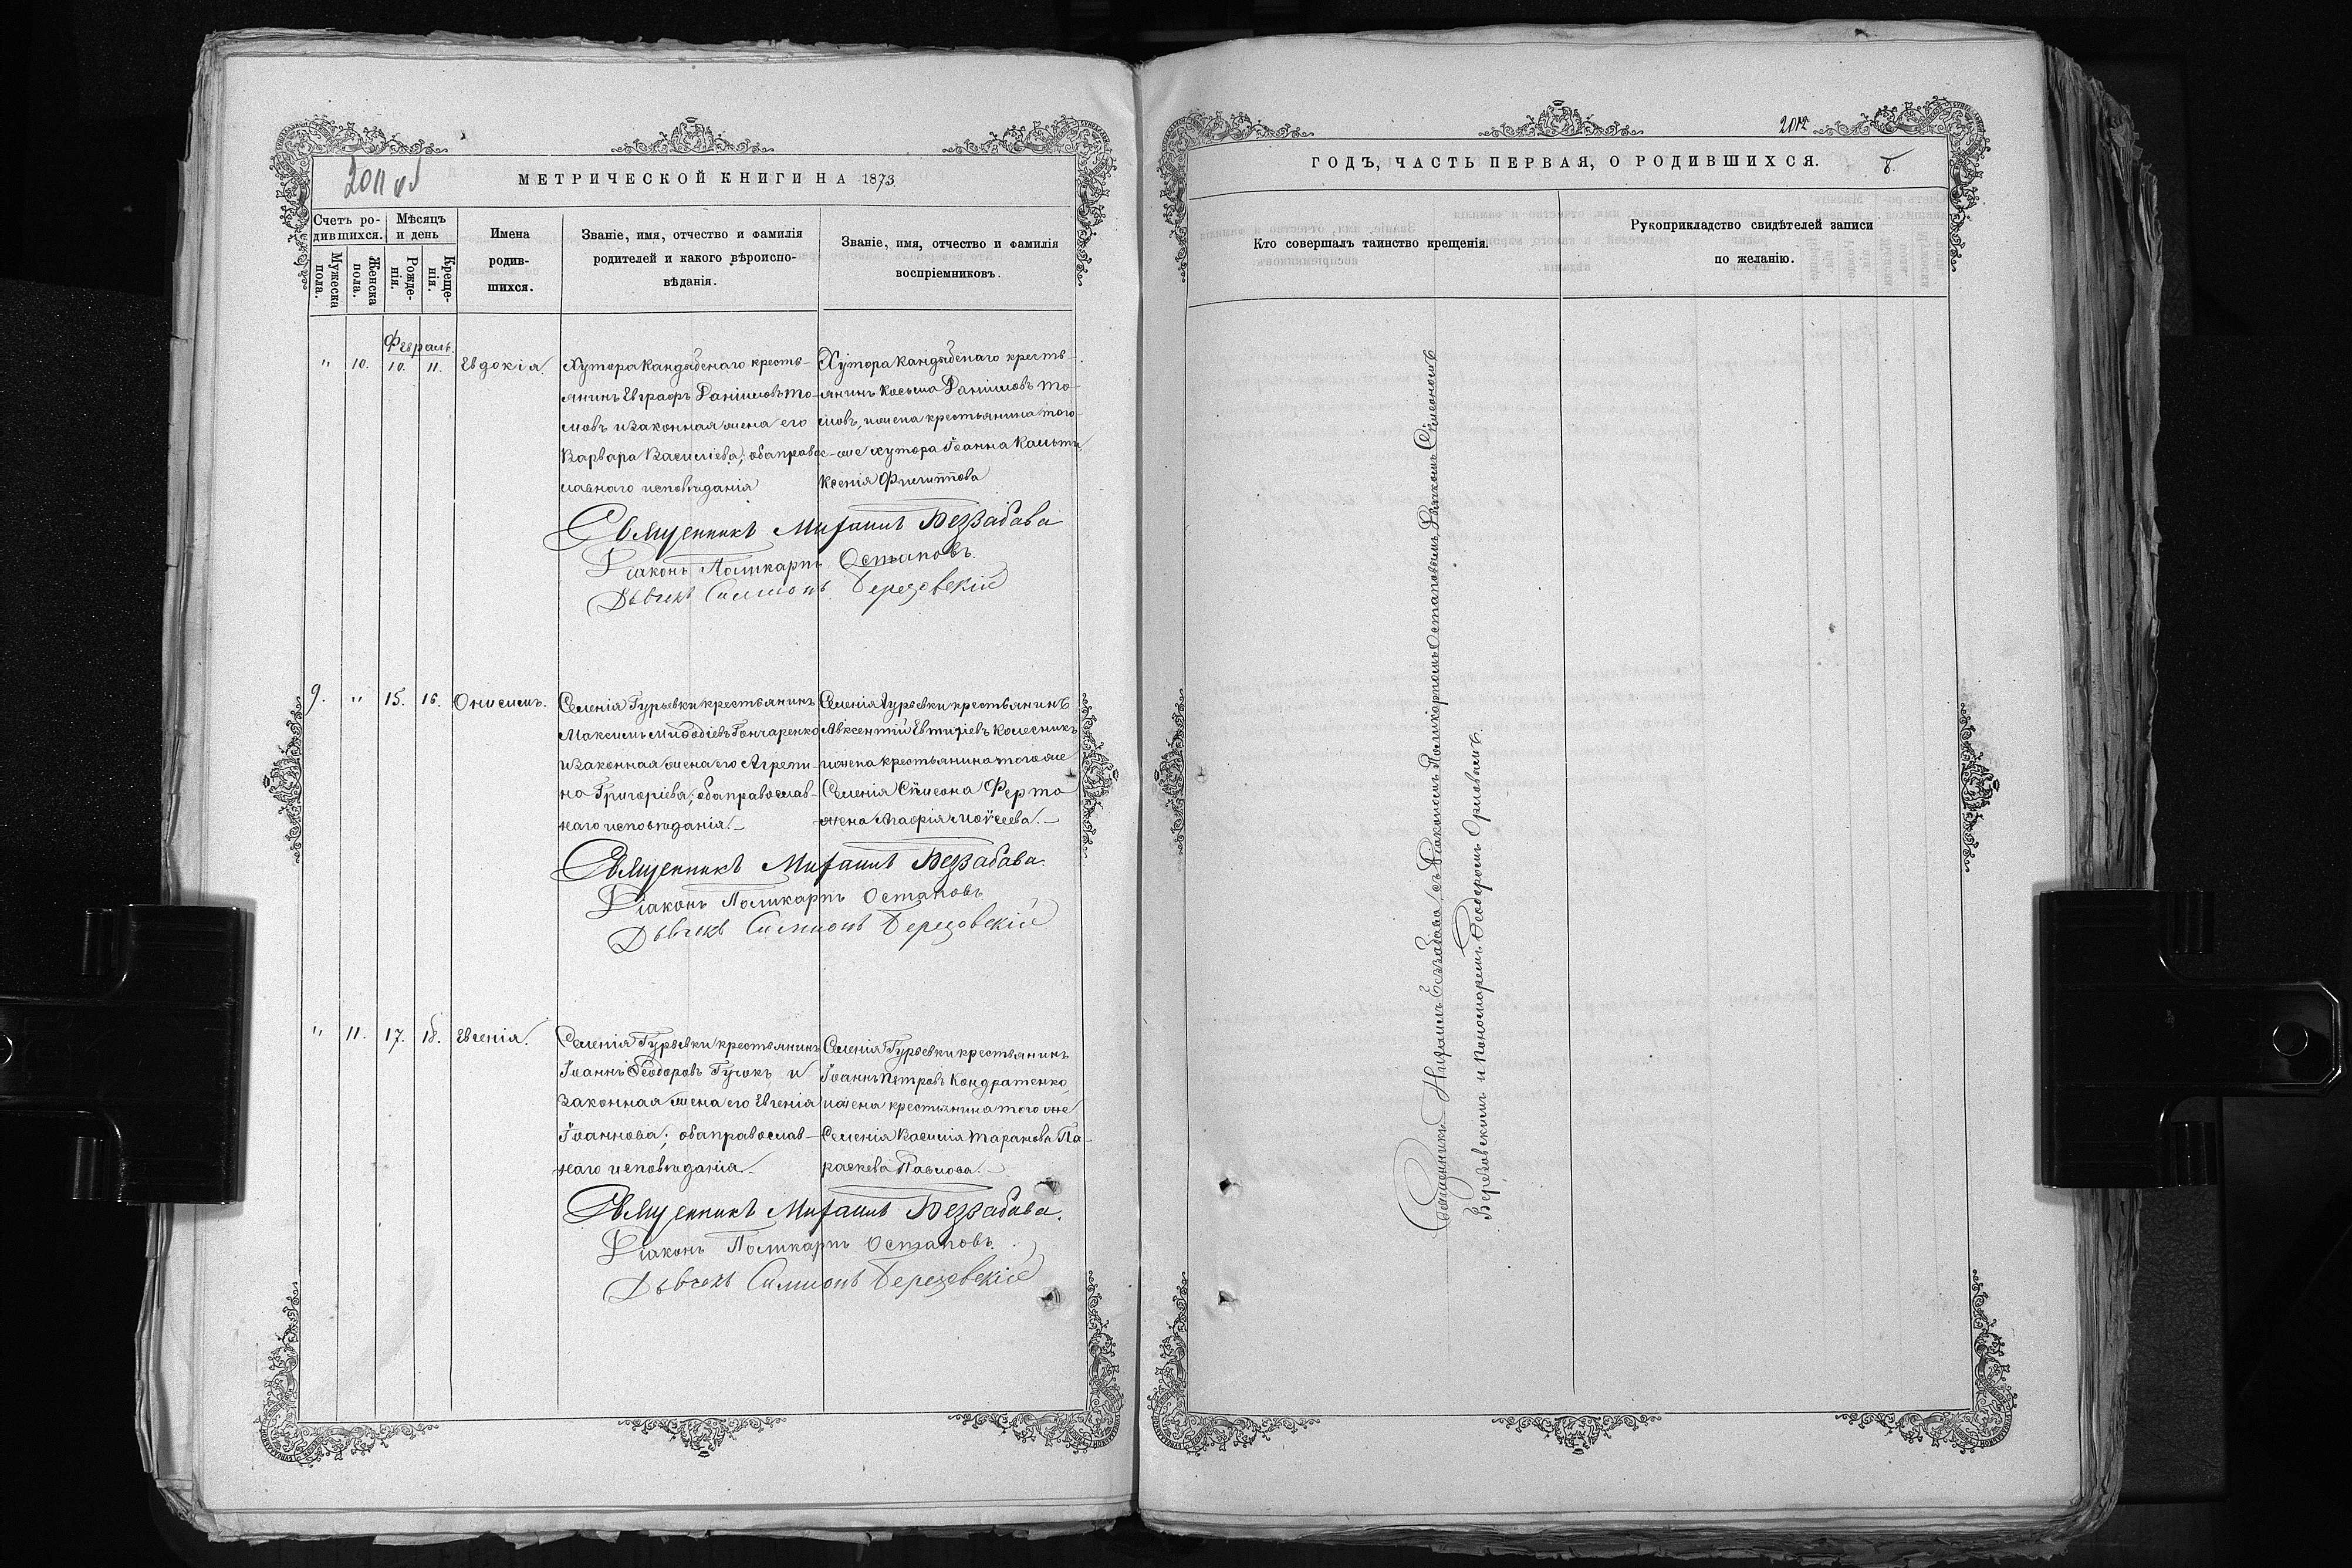 2011 об
МЕТРИЧЕСКОЙ КНИГИ НА 1873
Счетъ ро-
дившихся.
Мѣсяцъ
и день
Мужеска
пола.
Женска
пола.
Рожде-
нія.
Креще-
нія.
Имена
родив-
шихся.
Званіе, имя, отчество и фамилія
родителей и какого вѣроиспо-
вѣданія.
Званіе, имя, отчество и фамилія
воспріемниковъ.
Февраль.
" 10. 10. 11. Евдокія.
Хутора Кандыбенаго кресть-
янинъ Евграфъ Даніиловъ То-
мовъ и законная жена его
Варвара Василіева; оба правос-
лавнаго исповѣданія
Хутора Кандыбенаго кресть-
янинъ Косьма Даніиловъ То-
мовъ, и жена крестьянина того-
же хутора Іоанна
Ксенія Филиппова
Священникъ Михаилъ Беззабава
Діаконъ Поликарпъ Остаповъ.
Дьячекъ Симионъ Березовскій
9. " 15. 16. Онисимъ.
Селенія Гурьевки крестьянинъ
Максимъ Миѳодіевъ Гончаренко
и законная жена его Агрепи-
на Григоріева; оба православ-
наго исповѣданія.
Селенія Гурьевки крестьянинъ
Авксентій Евтихіевъ Колесникъ
и жена крестьянина того же
Селенія Сѵмеона Ферто
жена Марія Моѵсеева.
Священникъ Михаилъ Беззабава.
Діаконъ Поликарпъ Остаповъ
Дьячекъ Симионъ Березовскій
" 11. 17. 18. Евгенія.
Селенія Гурьевки крестьянинъ
Іоаннъ Ѳеодоровъ Гучокъ и
законная жена его Евгенія
Іоаннова; оба православ-
наго исповѣданія.
Селенія Гурьевки крестьянинъ
Іоаннъ Петровъ Кондратенко,
и жена крестьянина того же
Селенія Василія Таранова Па-
раскева Павлова.
Священникъ Михаилъ Беззабава.
Діаконъ Поликарпъ Остаповъ.
Дьячекъ Симионъ Березовскій
2012
ГОДЪ, ЧАСТЬ ПЕРВАЯ, О РОДИВШИХСЯ.
8.
Кто совершалъ таинство крещенія.
Рукоприкладство свидѣтелей записи
по желанію.
Священникъ Михаилъ Беззабава, съ Діакономъ Поликарпомъ Остаповымъ, Дьячкомъ Сѵмеономъ
Березовскимъ и Пономаремъ Ѳеодоромъ Орловымъ.